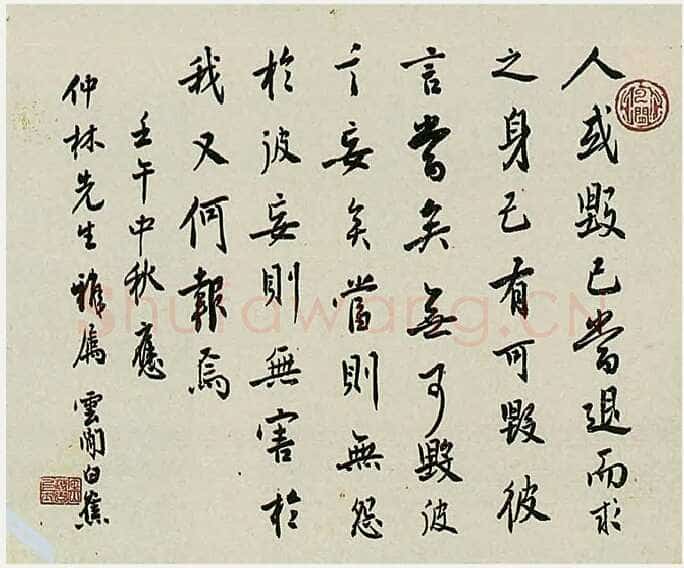 人或毀己當退而求
之身己有可毀彼
言當矣無可毀彼
言妄矣當則無怨
於彼妄則無害於
我又何報焉
壬午中秋應
仲林先生雅屬雲間白蕉
Shufawang.CN